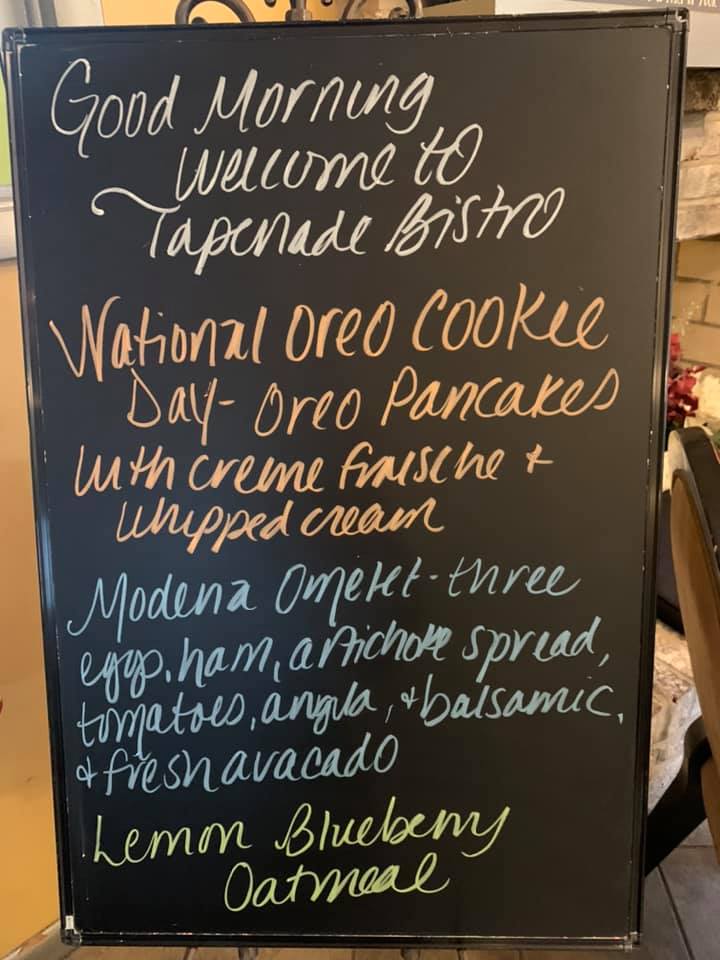 Good Morning
Welcome to
Tapenade Bistro
National Oreo Cookie
Day- Oreo Pancakes
with creme fraische +
whipped cream
Modena Omelet - three
eggs, ham, artichoke spread,
tomatoes, angula, + balsamic,
+ fresh avacado
Lemon Blueberry
Oatmeal